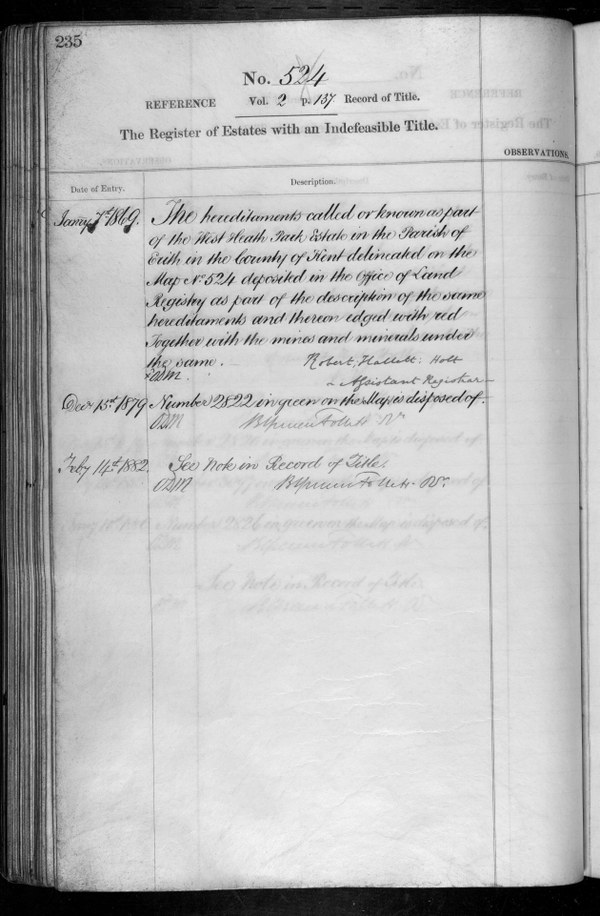 235
No. 524
REFERENCE Vol. 2 p. 137 Record of Title.
The Register of Estates with an Indefeasible Title.
OBSERVATIONS.
Date of Entry. Description.
Jany 7th 1869. The hereditaments called or known as part
of the West Heath Park Estate in the Parish of
Erith in the County of Kent delineated on the
Map No 524 deposited in the Office of Land
Registry as part of the description of the same
hereditaments and thereon edged with red
Together with the mines and minerals under
the same. Robert Hallett Holt
Assistant Registrar
Decr 15th 1879 Number 2822 in green on the Map is disposed of.
Feby 14th 1882. See Note in Record of Title.